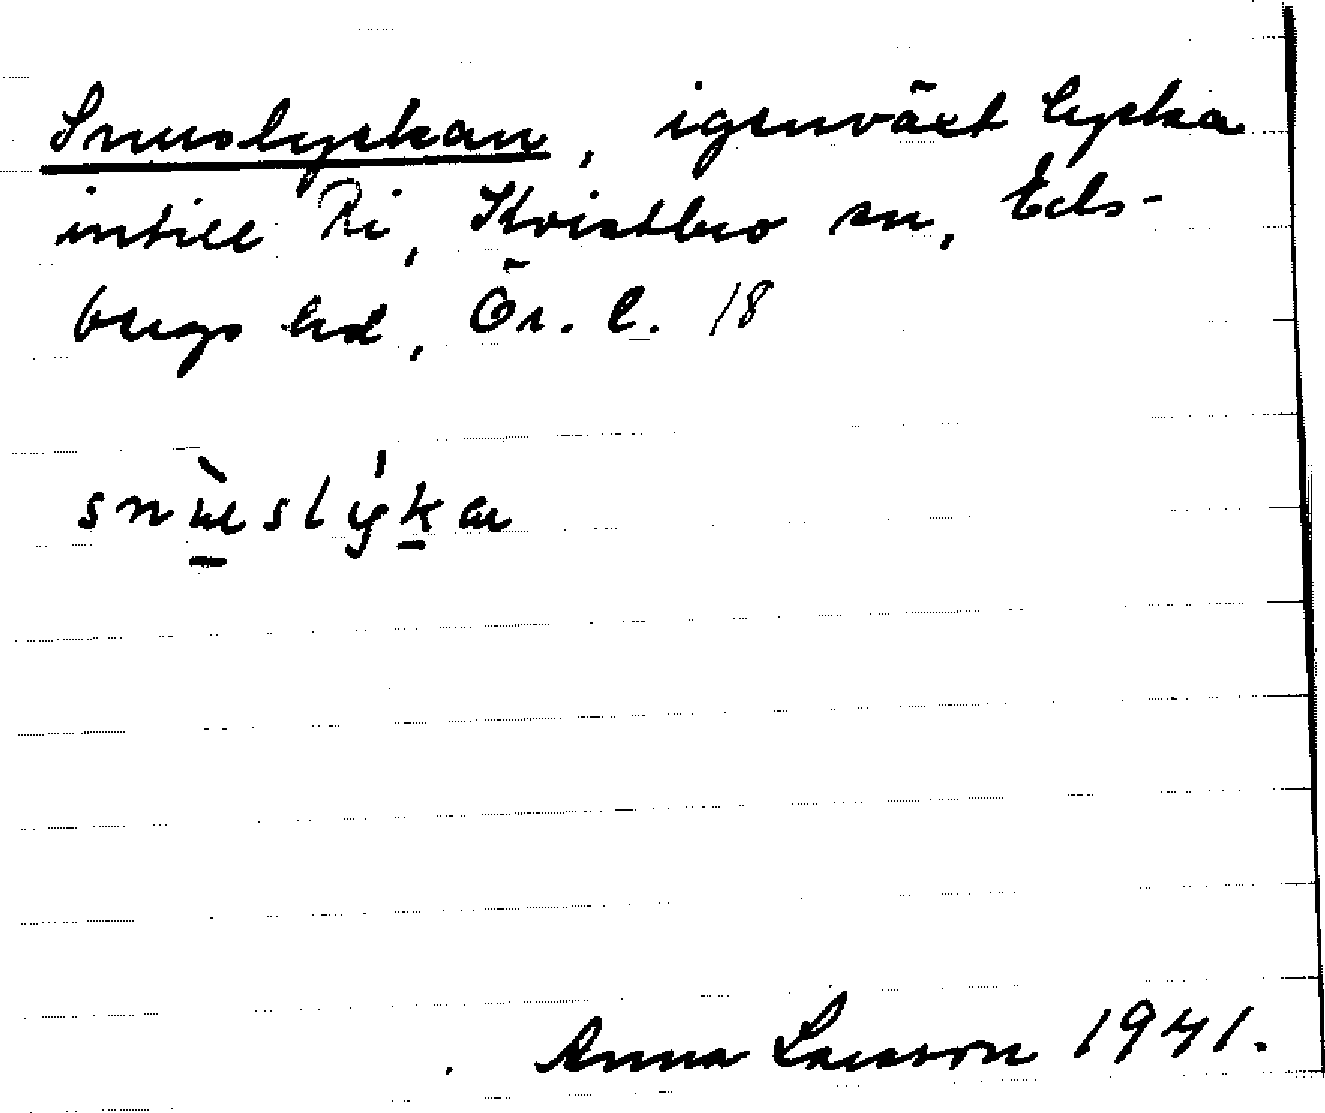 Snuslyckan, igenväxt lycka
intill Ri, Kvistbro sn, Eds-
bergs hd, Ör. l. 18
snùslýka
Anna Larsson 1941.